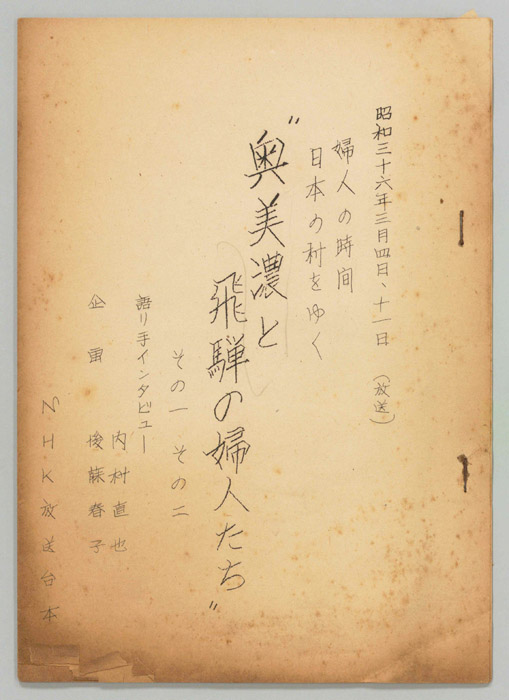 昭和三十六年三月四日、十一日 (放送)
婦人の時間
日本の村をゆく
"奥美濃と
飛騨の婦人たち"
その一 その二
語リ手インタビュー
内村直也
企画 後藤春子
NHK放送台本